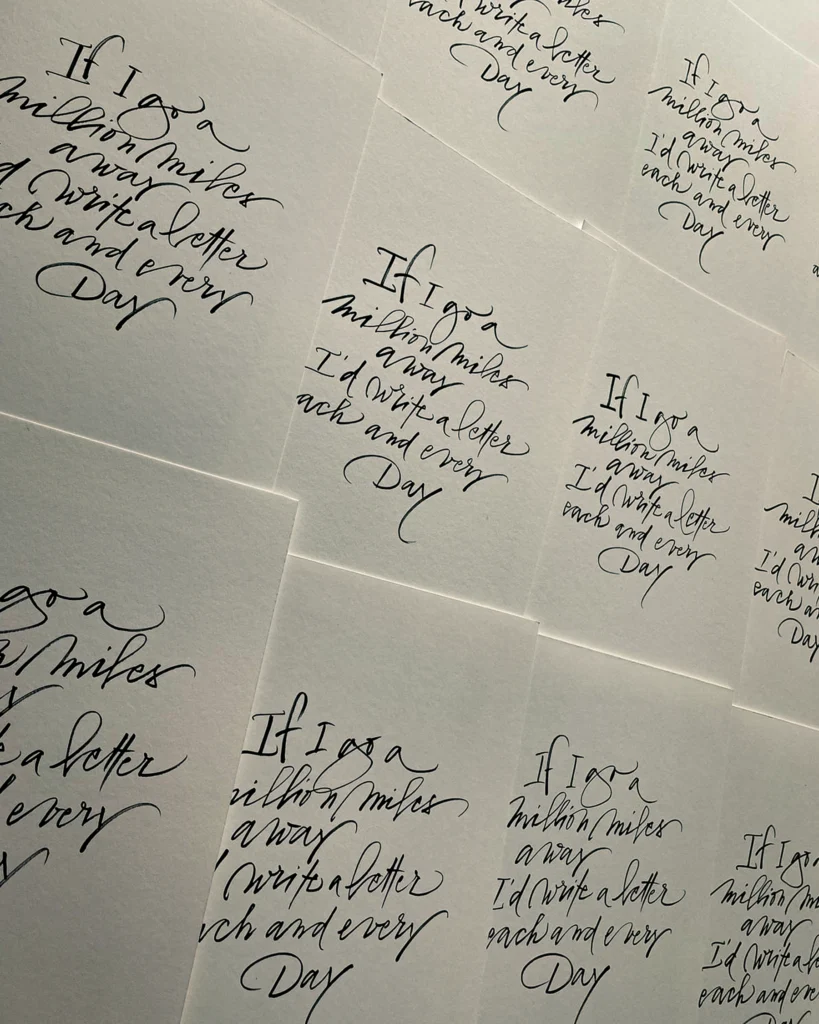 les
each and every
write a letter
Day
If I go a
million miles
away
I'd write a letter
each and every
Day
If I go a
million miles
away
d write a letter
ch and every
Day
If I go a
million miles
away
I'd write a letter
ach and every
Day
If I go a
million miles
away
I'd write a letter
each and every
Day
I
mill
aw
I'd wri
each an
Day
go a
miles
a letter
every
If I go a
illion miles
away
write a letter
ch and every
Day
If I go a
million miles
away
I'd write a letter
each and every
Day
If I go
million mi
away
I'd write a le
each and eve
Day